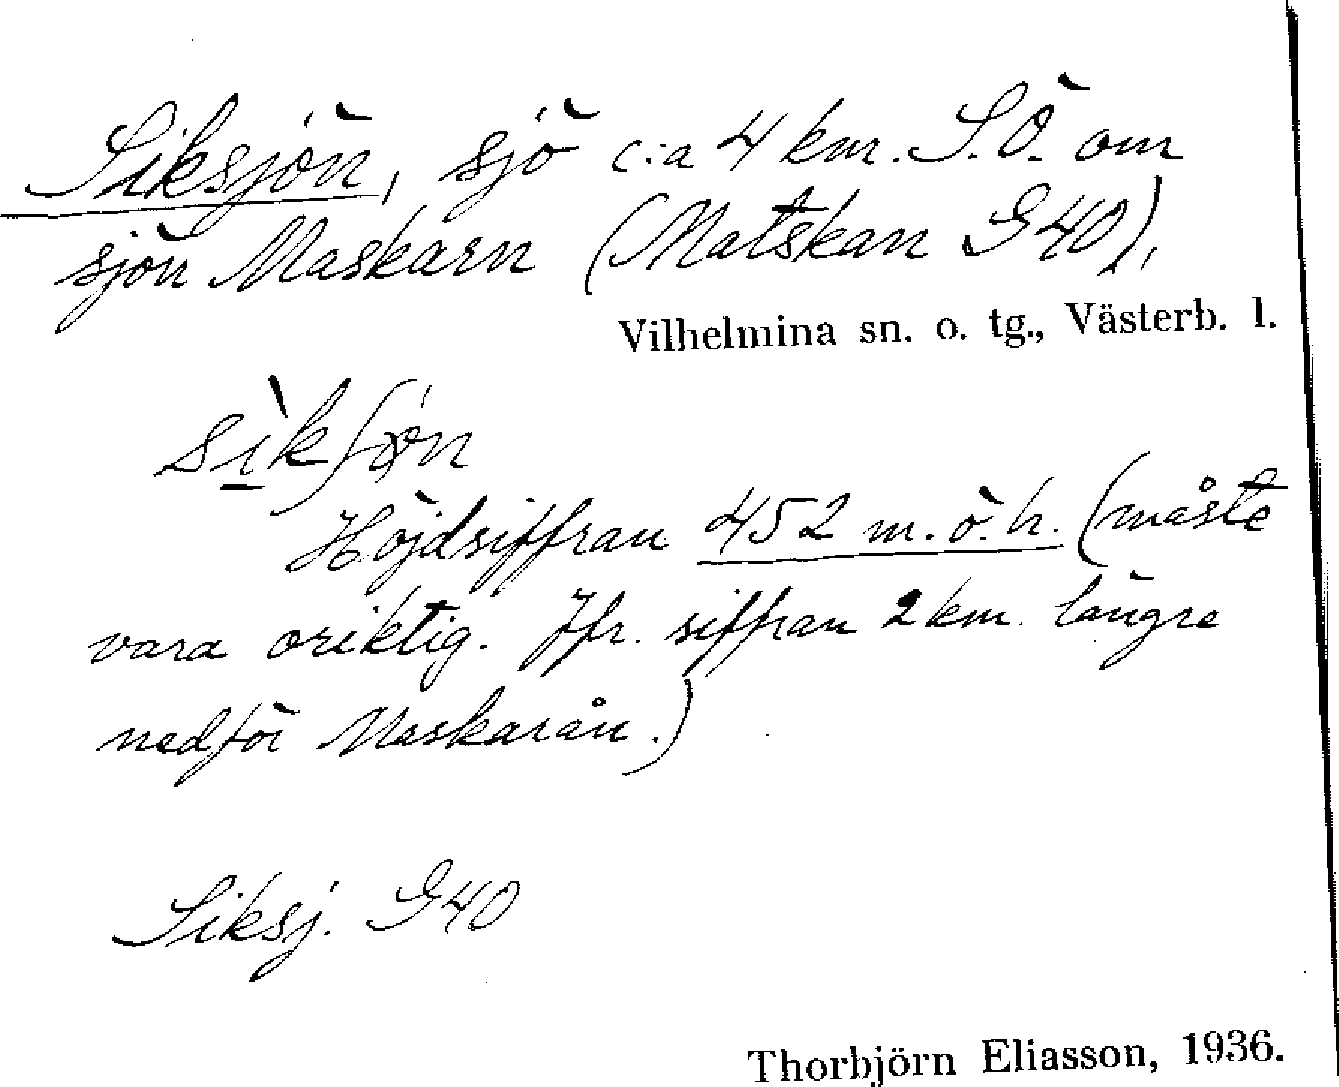 Siksjön, sjö c:a 4 km. S.Ö. om
sjön Maskarn (Matskan G40),
Vilhelmina sn. o. tg., Västerb. l.
Höjdsiffran 452 m.ö.h. (måste
vara oriktig. Jfr. siffran 2 km. längre
nedför Maskarån.)
Siksj. G40
Thorbjörn Eliasson, 1936.